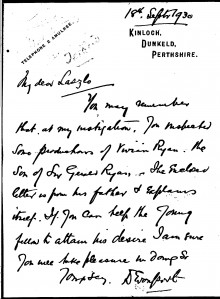 18th Septr 1930
TELEPHONE 9 AMULREE.
KINLOCH,
DUNKELD,
PERTHSHIRE.
My dear Laszlo
You may remember
that, at my instigation, you inspected
some productions of Vivian Ryan, the
Son of Sir Gerald Ryan, The enclosed
letter is from his father & explains
itself. If you can help the young
fella to attain his desire I am sure
you will take pleasure in doing so
Yours